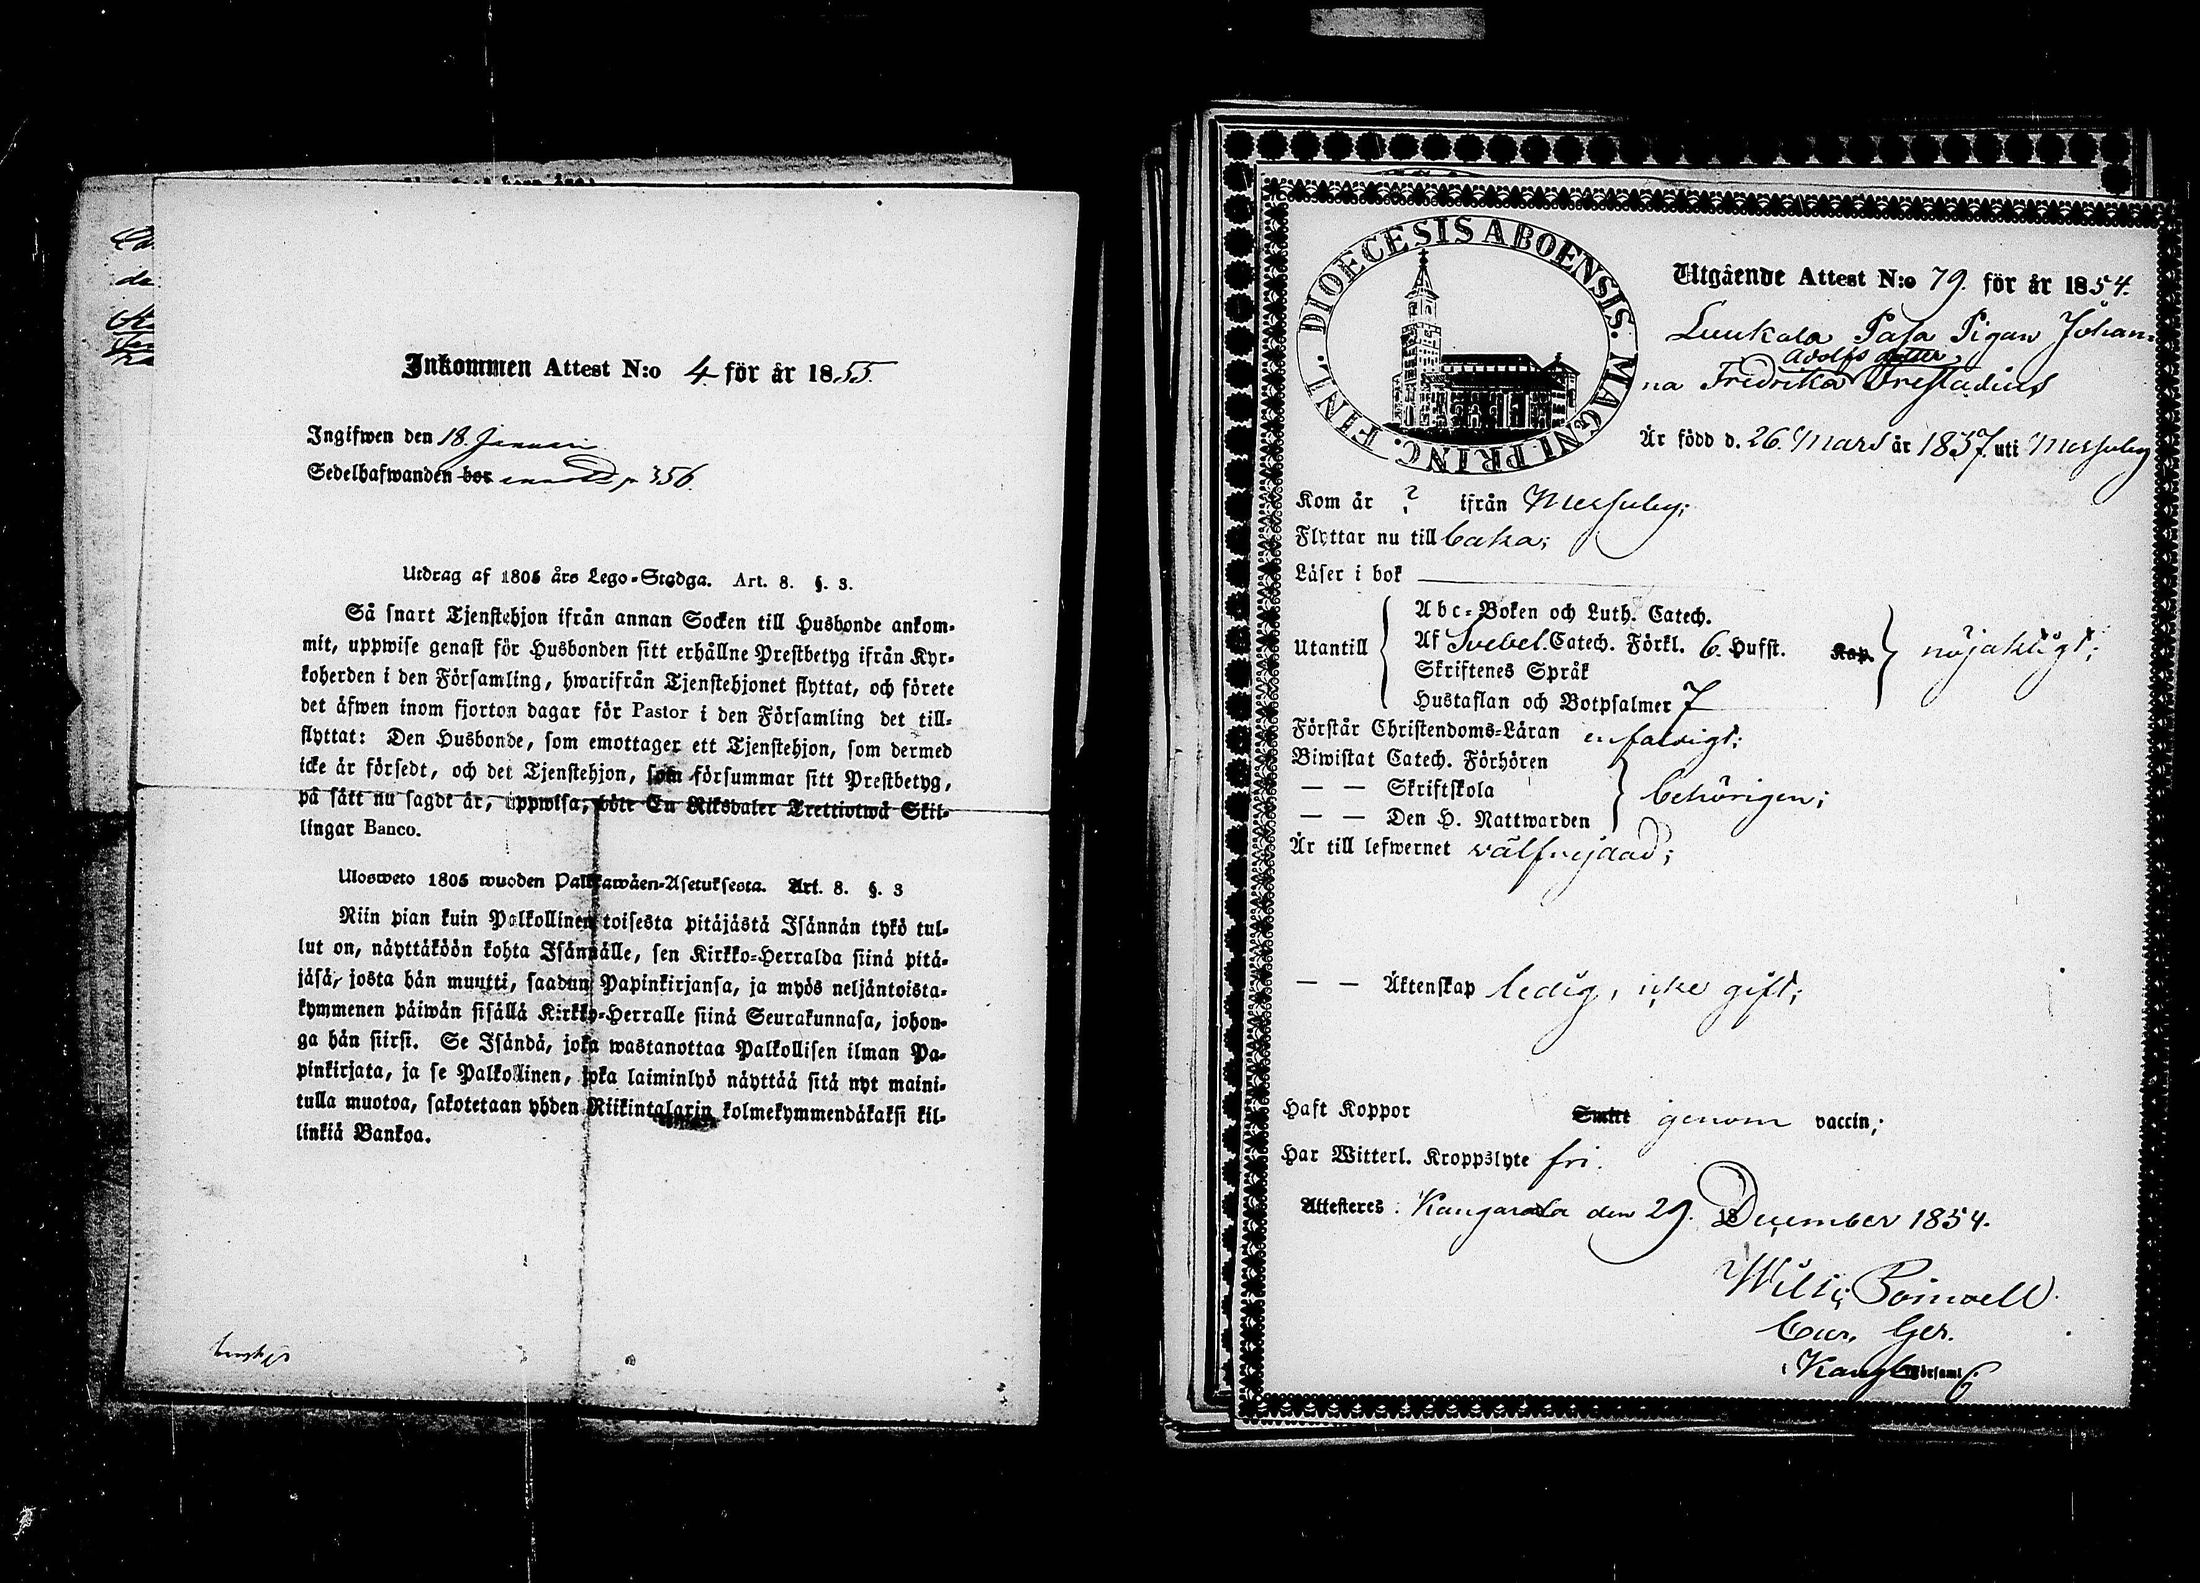 Inkommen Attest N:o 4. för år 1855.
Ingifwen den 18. Januari
Sedelhafwanden bor p. 356.
Utdrag af 1805 års Lego-Stadga. Art. 8. §. 3.
Så snart Tjenstehjon ifrån annan Socken till Husbonde ankom-
mit, uppwise genast för Husbonden sitt erhållne Prestbetyg ifrån Kyr-
koherden i den Församling, hwarifrån Tjenstehjonet flyttat, och förete
det äfwen inom fjorton dagar för Pastor i den Församling det till-
flyttat: Den Husbonde, som emottager ett Tjenstehjon, som dermed
icke är försedt, och det Tjenstehjon, som försummar sitt Prestbetyg,
på sätt nu sagdt är, uppwisa, böte En Riksdaler Trettiotwå Skil-
lingar Banco.
Ulosweto 1805 wuoden Palkkawäen-Asetuksesta. Art. 8. §. 3
Niin pian kuin Palkollinen toisesta pitäjästä Isännän tykö tul-
lut on, näyttäköön kohta Isännälle, sen Kirkko-Herralda siinä pitä-
jäsä, josta hän muutti, saadun Papinkirjansa, ja myös neljäntoista-
kymmenen päiwän sisällä Kirkko-Herralle siinä Seurakunnasa, johon-
ga hän siirsi. Se Isändä, joka wastanottaa Palkollisen ilman Pa-
pinkirjata, ja se Palkollinen, joka laiminlyö näyttää sitä nyt maini-
tulla muotoa, sakotetaan yhden Riikintalarin kolmekymmendäkaksi kil-
linkiä Bankoa.
DIOECESIS ABOENSIS. MAGNI PRINC. FINL.
Utgående Attest N:o 79. för år 1854.
Luukala Pasa Pigan Johan-
Adolfs dotter
na Fredrika
Är född d. 26. Mars år 1837 uti Messuby
Kom år ? ifrån Messuby;
Flyttar nu till Eura;
Läser i bok
Abc-Boken och Luth. Catech.
Utantill Af Svebel. Catech. Förkl. 6. Hufst. Kap. nöjaktigt;
Skriftenes Språk
Hustaflan och Botpsalmer 7
Förstår Christendoms-Läran enfaldigt;
Biwistat Catech. Förhören
— — Skriftskola behörigen;
— — Den H. Nattwarden
Är till lefwernet välfrejdad;
— — Äktenskap ledig, icke gift;
Haft Koppor Smitt genom vaccin;
Har Witterl. Kroppslyte fri.
Attesteres: Kangasala den 29. 18 December 1854.
Wilh. Poinoell
Cur. Ger.
i Kangl Församl